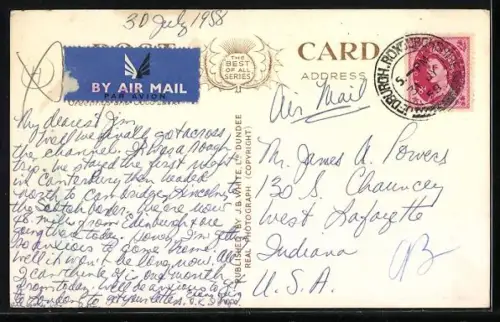 30 July 1958
POST CARD
THE
BEST
OF ALL
SERIES
ADDRESS
BY AIR MAIL
PAR AVION
Air Mail
My dearest Jim
Well we finally got across
the channel. It was a rough
trip. We stayed the first night
in Canterbury then headed
north to Cambridge, Lincoln,
the Scotch border. We are now
miles from Edenburgh & are
going there today. Honey, I'm getting
so anxious to come home.
Well it won't be long now. All
I can think of is one month
from today. Will be anxious to get
to London to get your letters.
PUBLISHED BY J. B. WHITE, LTD. DUNDEE
REAL PHOTOGRAPH (COPYRIGHT)
Mr. James A. Powers
130 S. Chauncey
West Lafayette
Indiana
U.S.A.
JEDBURGH. ROXBURGHSHIRE